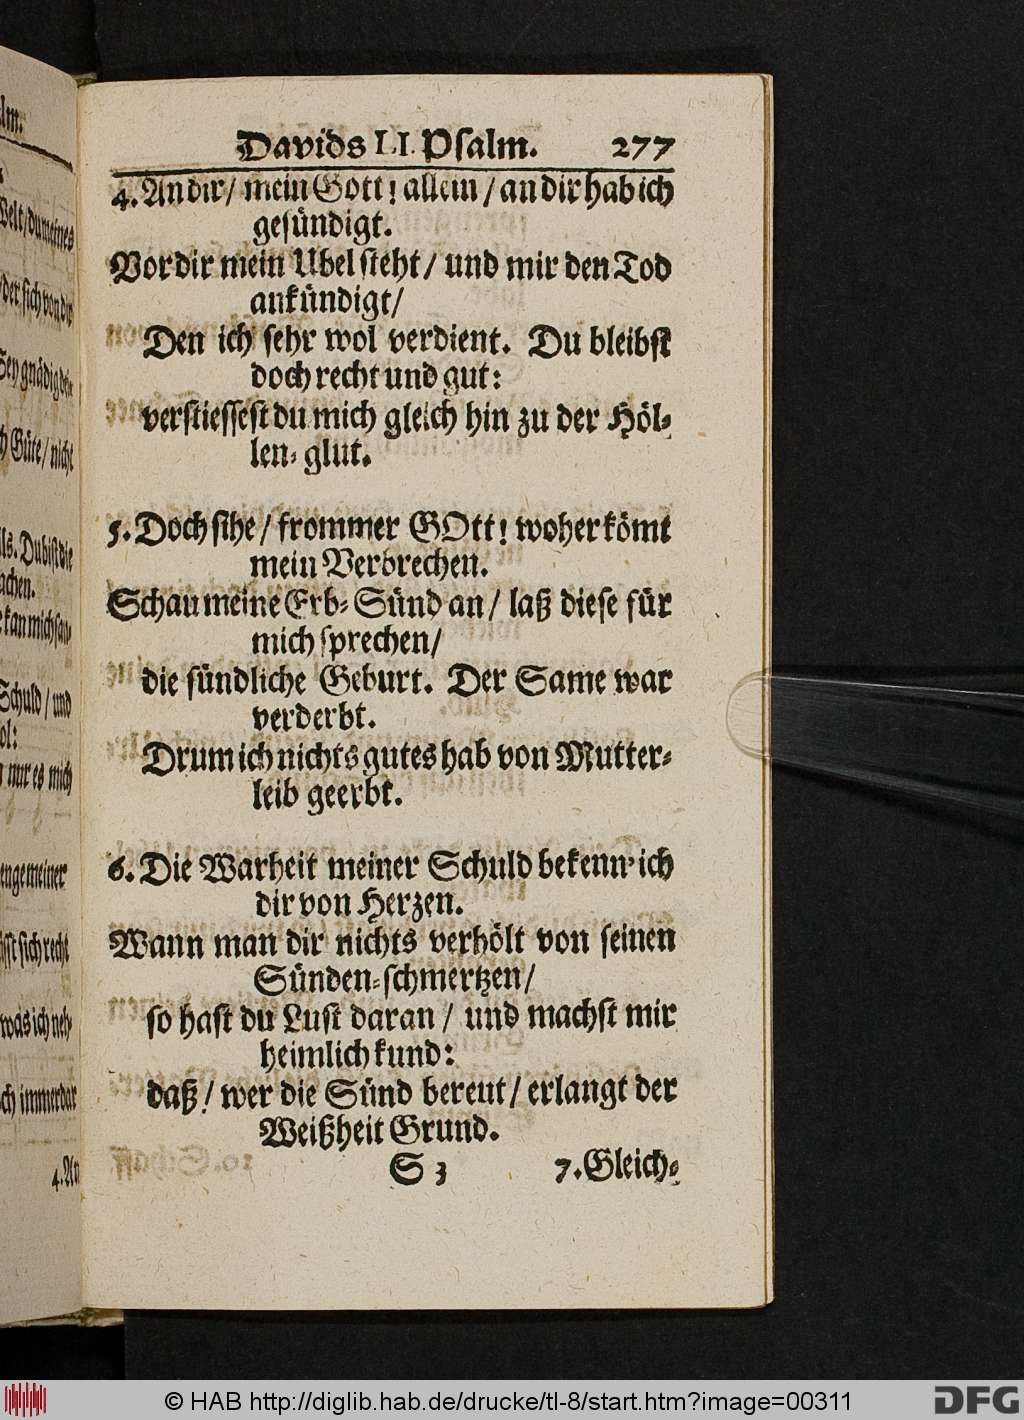 Davids LI. Psalm. 277
4. An dir / mein Gott! allein / an dir hab ich
gesündigt.
Vor dir mein Ubel steht / und mir den Tod
ankündigt /
Den ich sehr wol verdient. Du bleibst
doch recht und gut:
verstiessest du mich gleich hin zu der Höl-
len-glut.
5. Doch sihe / frommer GOtt! woher kömt
mein Verbrechen.
Schau meine Erb-Sünd an / laß diese für
mich sprechen /
die sündliche Geburt. Der Same war
verderbt.
Drum ich nichts gutes hab von Mutter-
leib geerbt.
6. Die Warheit meiner Schuld bekenn' ich
dir von Herzen.
Wann man dir nichts verhölt von seinen
Sünden-schmertzen /
so hast du Lust daran / und machst mir
heimlich kund:
daß / wer die Sünd bereut / erlangt der
Weißheit Grund.
S 3 7. Gleich-
© HAB http://diglib.hab.de/drucke/tl-8/start.htm?image=00311
DFG